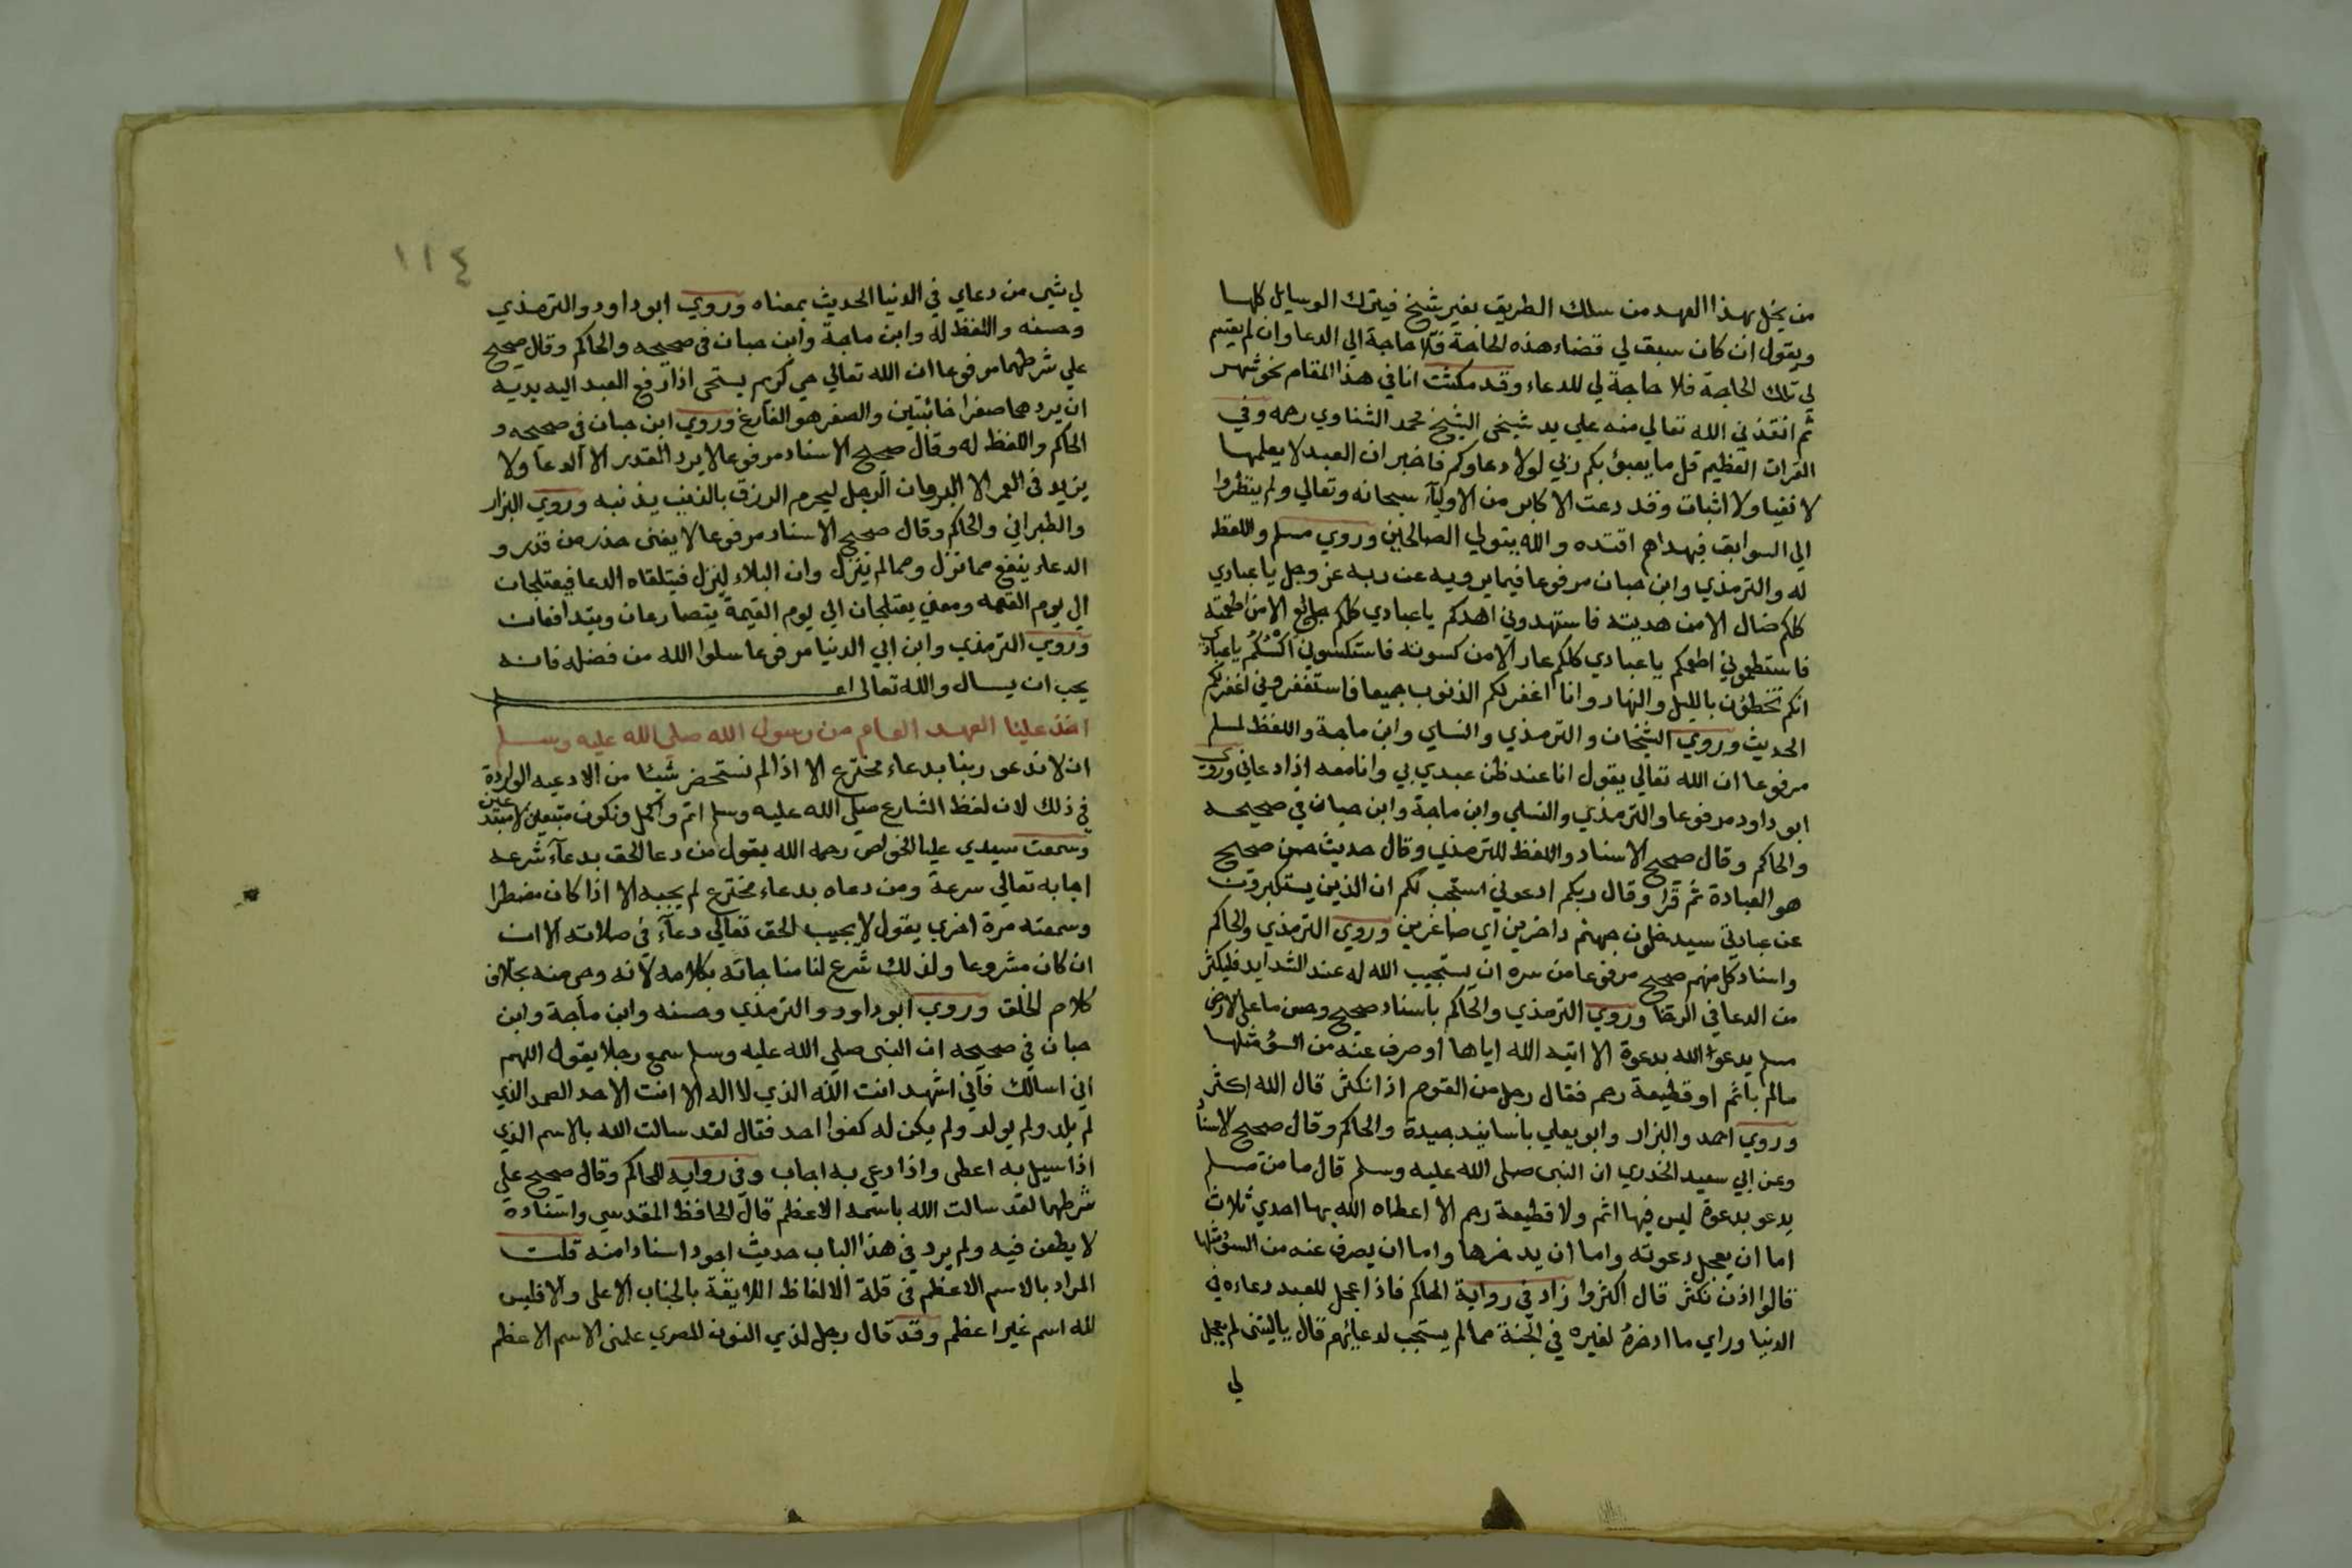 من يخل بهذا العهد من سلك الطريق بغير شيخ فيترك الوسايل كلها
ويقول ان كان سبق لي قضاء هذه الحاجة فلا حاجة الي الدعا وان لم يقسم
لي تلك الحاجة فلا حاجة لي للدعاء وقد مكثت انا في هذا المقام نحو شهر
ثم انقذني الله تعالي منه علي يد شيخي الشيخ محمد الشناوي رحمه وفي
القران العظيم قل ما يعبؤ بكم ربي لولا دعاوكم فاخبر ان العبد لا يعلمها
لا نفيا ولا اثبات وقد دعت الاكابر من الاوليآء سبحانه وتعالي ولم ينظروا
الي السوابق فبهداهم اقتده والله يتولي الصالحين وروي مسلم واللفظ
له والترمذي وابن حبان مرفوعا فيما يرويه عن ربه عز وجل يا عبادي
كلكم ضال الا من هديته فاستهدوني اهدكم يا عبادي كلكم جائع الا من اطعمته
فاستطعموني اطعمكم يا عبادي كلكم عار الا من كسوته فاستكسوني اكسكم يا عبادي
انكم تخطؤن بالليل والنهار وانا اغفر لكم الذنوب جميعا فاستغفروني اغفر لكم
الحديث وروي الشيخان والترمذي والنساي وابن ماجة واللفظ لمسلم
مرفوعا ان الله تعالي يقول انا عند ظن عبدي بي وانا معه اذا دعاني وروي
ابو داود مرفوعا والترمذي والنساي وابن ماجة وابن حبان في صحيحه
والحاكم وقال صحيح الاسناد واللفظ للترمذي وقال حديث حسن صحيح
هو العبادة ثم قرا وقال ربكم ادعوني استجب لكم ان الذين يستكبرون
عن عبادتي سيدخلون جهنم داخرين اي صاغرين وروي الترمذي والحاكم
واسناد كل منهم صحيح مرفوعا من سره ان يستجيب الله له عند الشدايد فليكثر
من الدعا في الرخا وروي الترمذي والحاكم باسناد صحيح وحسن ما علي الارض
مسلم يدعوا الله بدعوة الا اتيه الله اياها او صرف عنه من السؤ مثلها
مالم باثم او قطيعة رحم فقال رجل من القوم اذا نكثر قال الله اكثر
وروي احمد والبزار وابو يعلي باسانيد جيدة والحاكم وقال صحيح الاسناد
وعن ابي سعيد الخدري ان النبي صلى الله عليه وسلم قال ما من مسلم
يدعو بدعوة ليس فيها اثم ولا قطيعة رحم الا اعطاه الله بها احدي ثلاث
اما ان يعجل دعوته واما ان يدخرها واما ان يصرف عنه من السؤ مثلها
قالوا اذن نكثر قال اكثروا زاد في رواية الحاكم فاذا عجل للعبد دعاءه في
الدنيا وراي ما ادخره لغيره في الجنة مما لم يستجب لدعائهم قال يا ليتني لم يعجل
لي
١١٤
لي شي من دعاي في الدنيا الحديث بمعناه وروي ابو داود والترمذي
وحسنه واللفظ له وابن ماجة وابن حبان في صحيحه والحاكم وقال صحيح
علي شرطهما مرفوعا ان الله تعالي حي كريم يستحي اذا رفع العبد اليه يديه
ان يردهما صفرا خائبتين والصفر هو الفارغ وروي ابن حبان في صحيحه و
الحاكم واللفظ له وقال صحيح الاسناد مرفوعا لا يرد القدر الا الدعا ولا
يزيد في العمر الا البر وان الرجل ليحرم الرزق بالذنب يذنبه وروي البزار
والطبراني والحاكم وقال صحيح الاسناد مرفوعا لا يغني حذر من قدر و
الدعاء ينفع مما نزل ومما لم ينزل وان البلاء لينزل فيتلقاه الدعا فيعتلجان
الي يوم القيمه ومعني يعتلجان الي يوم القيمة يتصارعان ويتدافعان
وروي الترمذي وابن ابي الدنيا مرفوعا سلوا الله من فضله فانه
يحب ان يسال والله تعالى اعلم
اخذ علينا العهد العام من رسول الله صلى الله عليه وسلم
ان لا ندعو ربنا بدعاء مخترع الا اذا لم نستحضر شيئا من الادعيه الواردة
في ذلك لان لفظ الشارع صلي الله عليه وسلم اتم واكمل ونكون متبعين لا مبتدعين
وسمعت سيدي عليا الخواص رحمه الله يقول من دعا الحق بدعآء شرعه
اجابه تعالي سرعة ومن دعاه بدعاء مخترع لم يجبه الا اذا كان مضطرا
وسمعته مرة اخري يقول لا يجيب الحق تعالي دعآء في صلاته الا ان
ان كان مشروعا ولذلك شرع لنا مناجاته بكلامه لانه وحي منه بخلاف
كلام الخلق وروي ابو داود والترمذي وحسنه وابن ماجة وابن
حبان في صحيحه ان النبي صلي الله عليه وسلم سمع رجلا يقول اللهم
اني اسالك فاني اشهد انت الله الذي لا اله الا انت الاحد الصمد الذي
لم يلد ولم يولد ولم يكن له كفوا احد فقال لقد سالت الله بالاسم الذي
اذا سيل به اعطى واذا دعي به اجاب وفي رواية للحاكم وقال صحيح علي
شرطهما لقد سالت الله باسمه الاعظم قال الحافظ المقدسي واسناده
لا يطعن فيه ولم يرد في هذا الباب حديث اجود اسنادا منه قلت
المراد بالاسم الاعظم في قلة الالفاظ اللايقة بالجناب الاعلى والا فليس
لله اسم غير اعظم وقد قال رجل لذي النون المصري علمني الاسم الاعظم